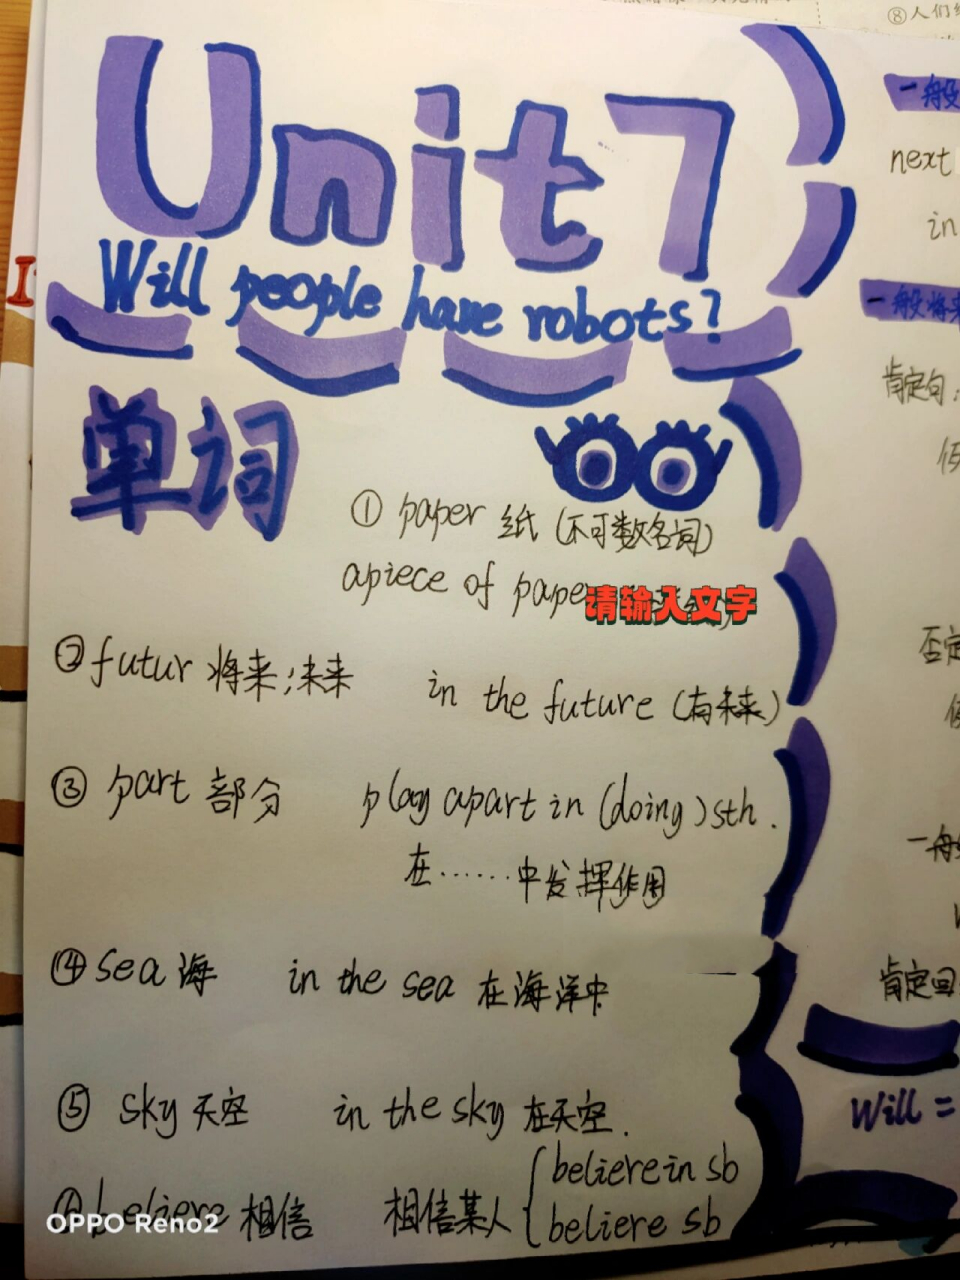 ⑧人们
Unit7
Will people have robots?
单词
① paper 纸 (不可数名词)
apiece of pape
请输入文字
② futur 将来;未来 in the future (有未来)
③ part 部分 play apart in (doing) sth.
在……中发挥作用
④ sea 海 in the sea 在海洋中
⑤ sky 天空 in the sky 在天空.
beliere 相信 相信某人 { beliere in sb
beliere sb
OPPO Reno2
一般
next
in
一般将来
肯定句:
否定
一般
肯定回
Will =